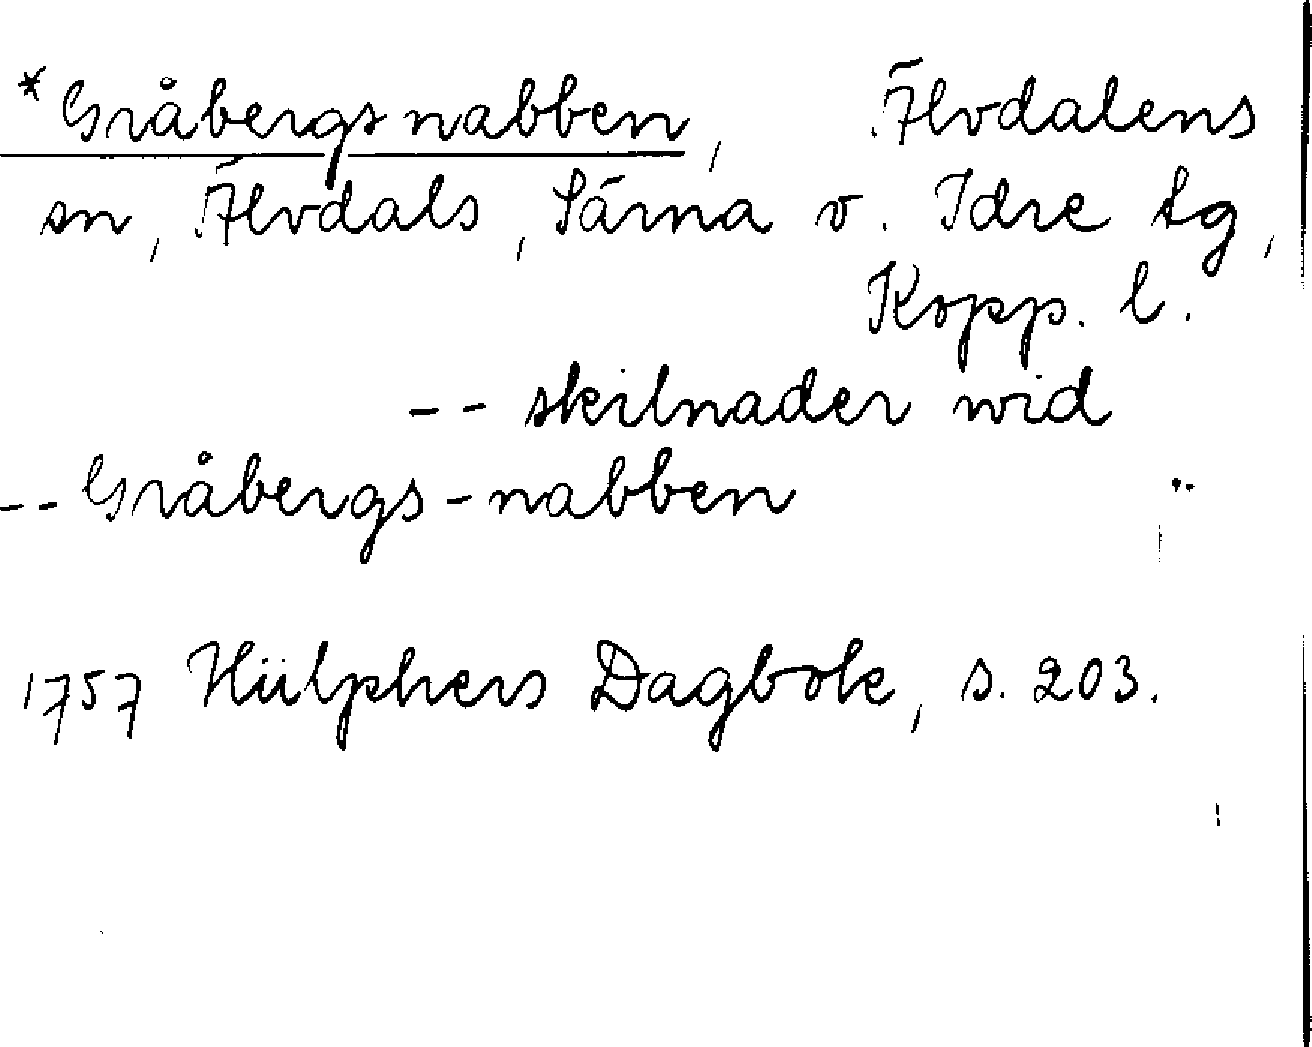 *Gråbergsnabben, Älvdalens
sn, Älvdals, Särna o. Idre tg,
Kopp. l.
-- skilnader wid
-- Gråbergs-nabben
1757 Hülphers Dagbok, s. 203.